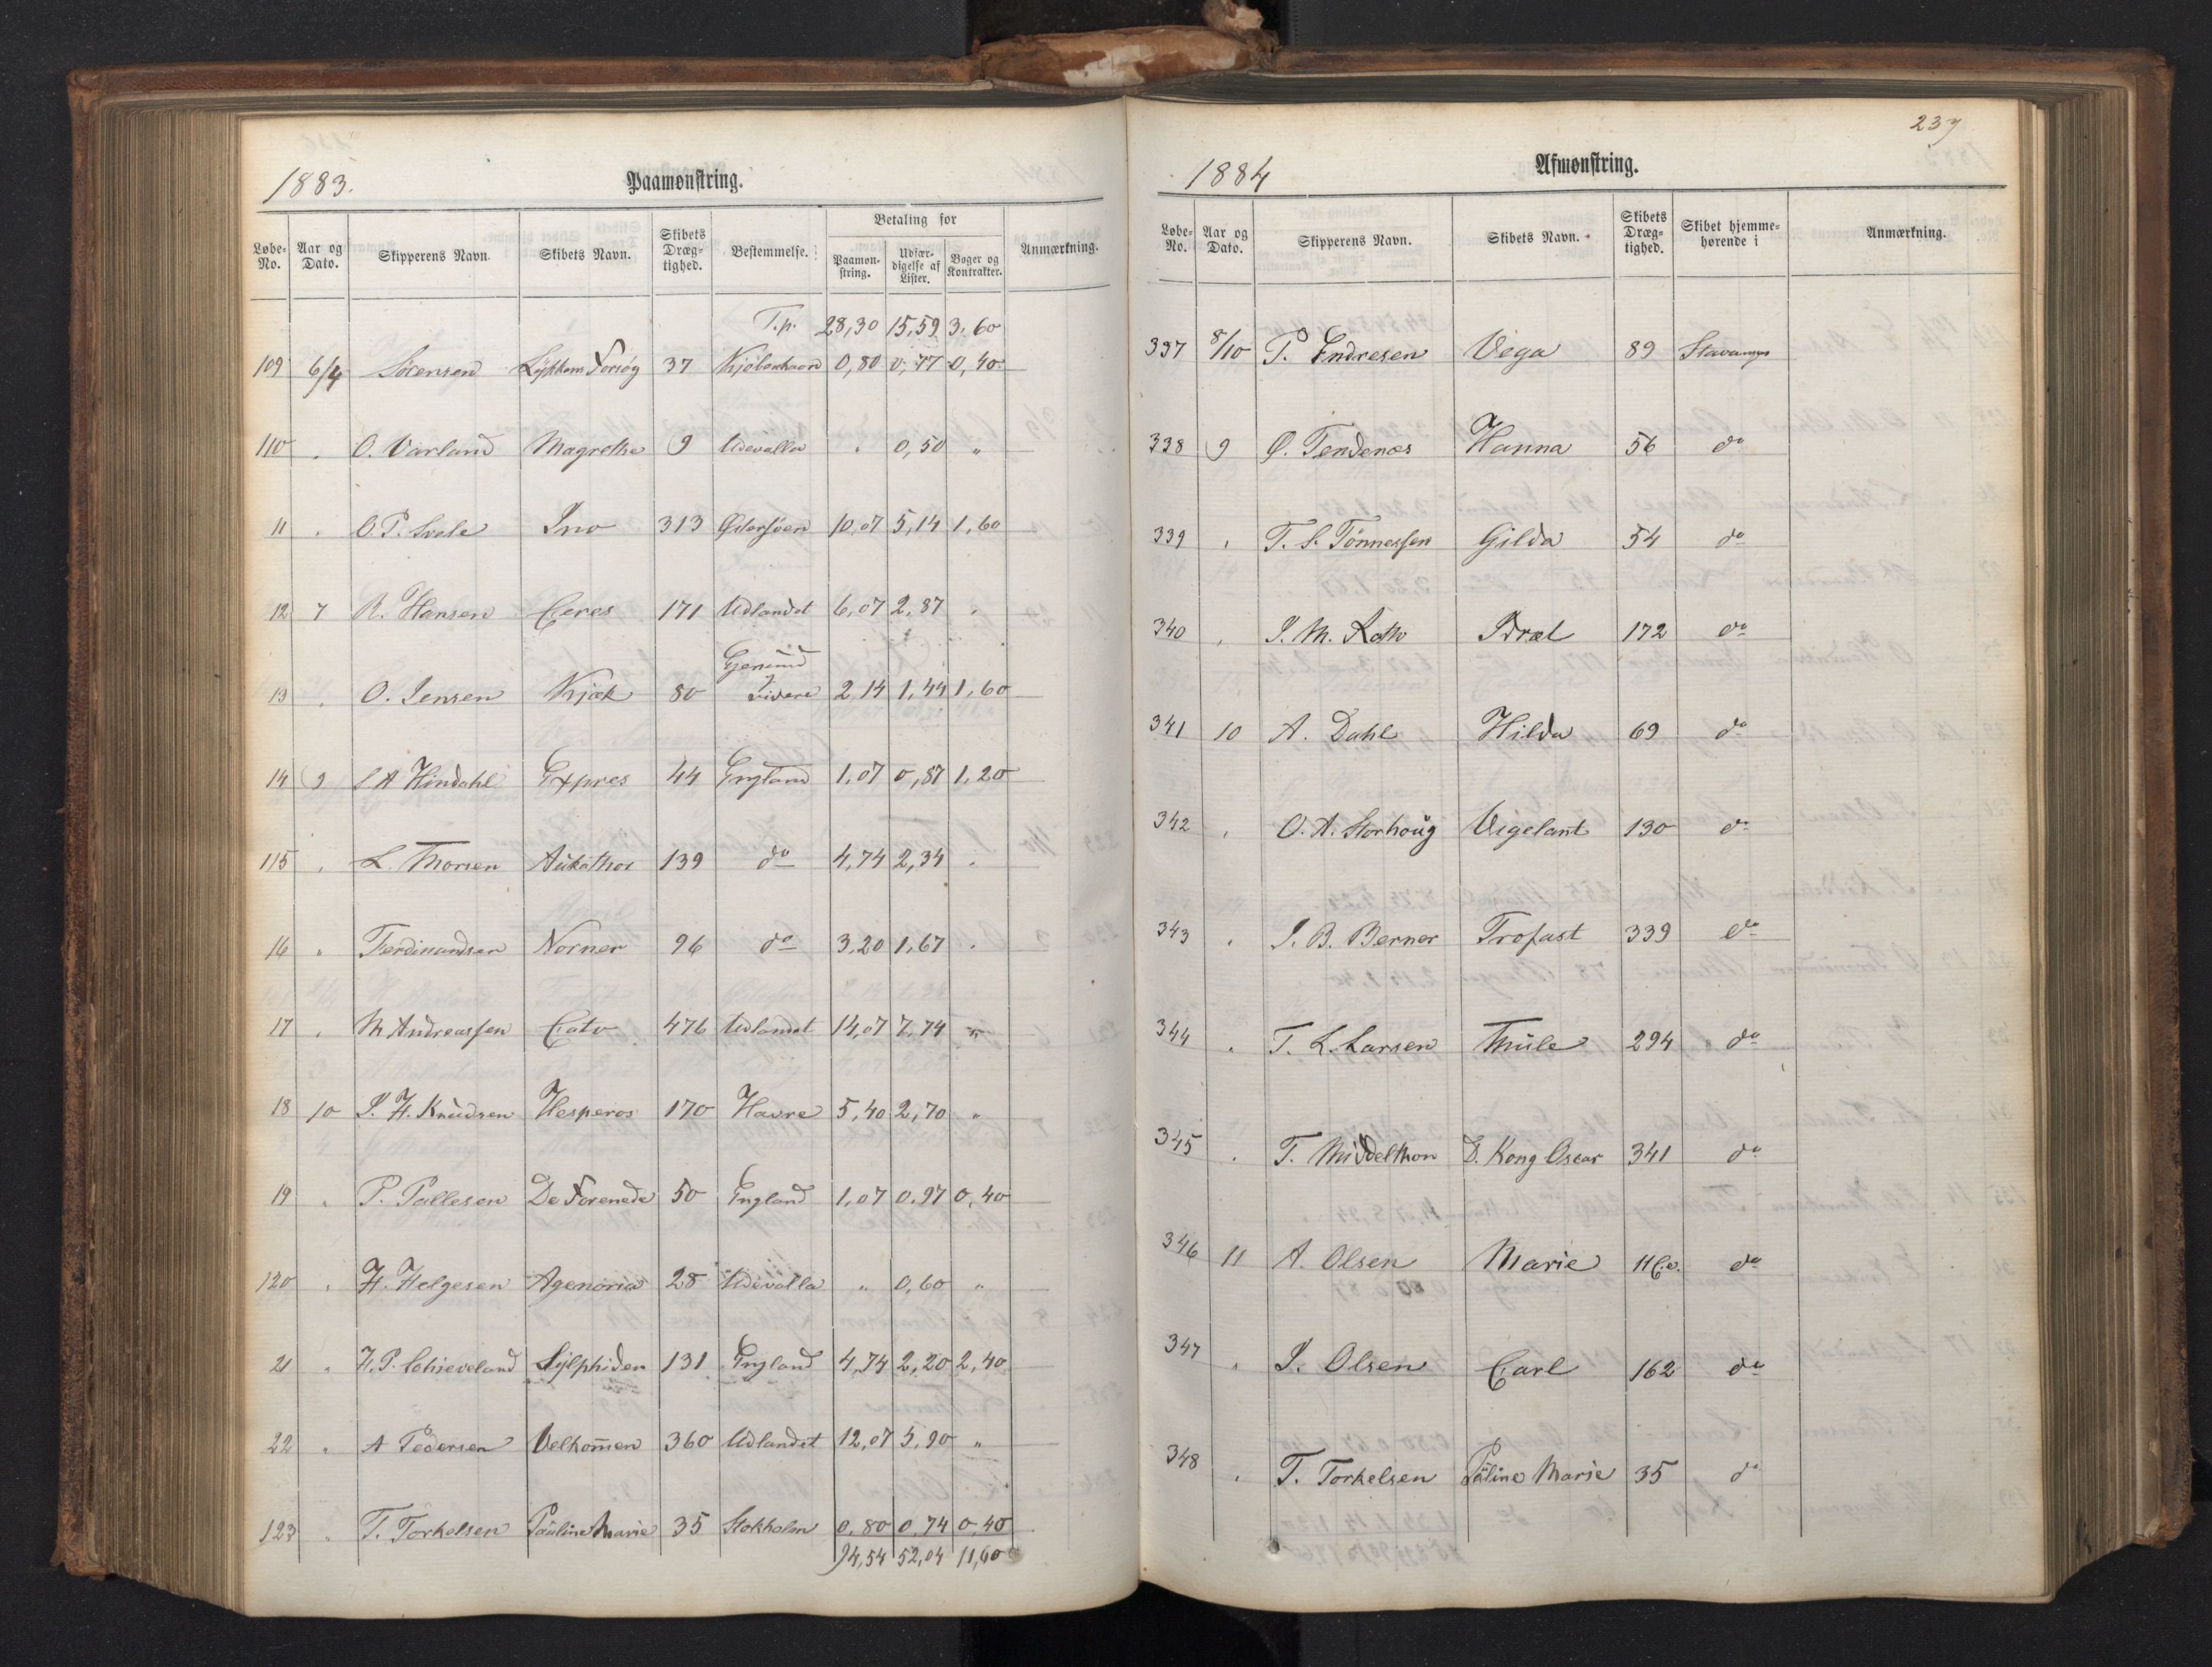 1883.
Paamønstring.
Løbe-No. | Aar og Dato. | Skipperens Navn | Skibets Navn. | Skibets Dræg-tighed. | Bestemmelse. | Betaling for | Anmærkning.
Paamøn-string. | Udfær-digelse af Lister. | Bøger og Kontrakter.
T.p. 28,30 15,59 3,60
109 6/4 Sörensen Lykkens Forsøg 37 Kjöbenhavn 0,80 0,77 0,40
110 . O. Varland Magrethe 9 Udevalla . 0,50 "
11 . O.P. Svale Ino 313 Østersöen 10,07 5,14 1,60
12 7 R. Hansen Ceres 171 Udlandet 6,07 2,87 .
13 . O. Jensen Kjæk 80 videre 2,14 1,44 1,60
14 9 Hindahl Expres 44 England 1,07 0,87 1,20
115 . L. Thorsen Aukathor 139 do 4,74 2,34 .
16 " Ferdinandsen Norner 96 do 3,20 1,67 .
17 . M Andreassen Cato 476 Udlandet 14,07 7,74 "
18 10 J. H. Knudsen Hesperos 170 Havre 5,40 2,70 "
19 . P. Pallesen De Forenede 50 England 1,07 0,97 0,40
120 . H. Helgesen Agenoria 28 Udevalla " 0,60 "
21 " Sylphiden 131 England 4,74 2,20 2,40
22 " A Pedersen Velkommen 360 Udlandet 12,07 5,90 "
123 " T. Torkelsen Pauline Marie 35 Stokholm 0,80 0,74 0,40
94,54 52,04 11,60
237
1884
Afmønstring.
Løbe-No. | Aar og Dato. | Skipperens Navn. | Skibets Navn. | Skibets Dræg-tighed. | Skibet hjemme-hørende i | Anmærkning.
337 8/10 P. Endresen Vega 89 Stavanger
338 9 Ø. Tendenæs Hanna 56 do
339 . T. S. Tönnessen Gilda 54 do
340 . J. M. Roth Idræt 172 do
341 10 A. Dahl Hilda 69 do
342 . O. A. Storhoug Vigelant 130 do
343 . J. B. Berner Trofast 339 do
344 . T. L. Larsen Thule 294 do
345 . T. Middelthon D. Kong Oscar 341 do
346 11 A. Olsen Marie 11 Co. do
347 . J. Olsen Carl 162 do
348 . T. Torkelsen Pauline Marie 35 do